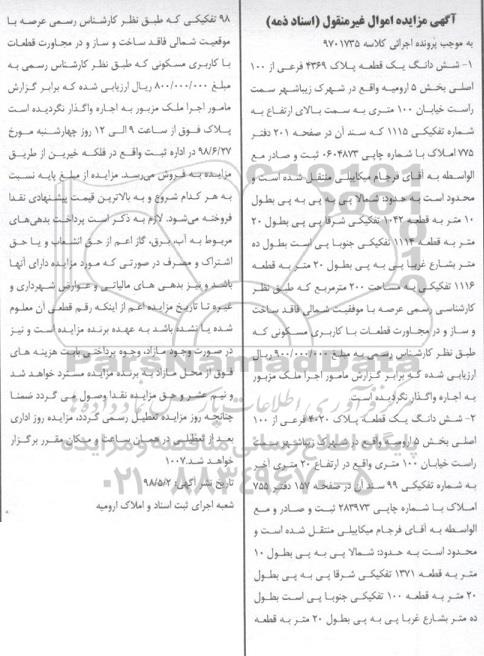 آگهی مزایده اموال غیرمنقول (اسناد ذمه)
به موجب پرونده اجرائی کلاسه ۹۷۰۱۷۳۵
۱- شش دانگ یک قطعه پلاک ۴۳۶۹ فرعی از ۱۰۰
اصلی بخش ۵ ارومیه واقع در شهرک زیباشهر سمت
راست خیابان ۱۰۰ متری به سمت بالای ارتفاع به
شماره تفکیکی ۱۱۱۵ که سند آن در صفحه ۲۰۱ دفتر
۷۷۵ املاک با شماره چاپی ۰۶۰۴۸۷۳ ثبت و صادر مع
الواسطه به آقای فرجام میکاییلی منتقل شده است و
محدود است به حدود: شمالا پی به پی به پی بطول
۱۰ متر به قطعه ۱۰۴۲ تفکیکی شرقا پی پی بطول ۲۰
متر به قطعه ۱۱۱۴ تفکیکی جنوبا پی است بطول ده
متر بشارع غربا پی به پی بطول ۲۰ متر به قطعه
۱۱۱۶ تفکیکی به مساحت ۲۰۰ مترمربع که طبق نظر
کارشناسی رسمی عرصه با موقعیت شمالی فاقد ساخت
و ساز و در مجاورت قطعات با کاربری مسکونی که
طبق نظر کارشناس رسمی به مبلغ ۹۰۰/۰۰۰/۰۰۰ ریال
ارزیابی شده که برابر گزارش مامور اجرا ملک مزبور
به اجاره واگذار نگردیده است
۲- شش دانگ یک قطعه پلاک ۴۰۲۰ فرعی از ۱۰۰
اصلی بخش ۵ ارومیه واقع در شهرک زیباشهر سمت
راست خیابان ۱۰۰ متری واقع در ارتفاع ۲۰ متری آخر
به شماره تفکیکی ۹۹ سند آن در صفحه ۱۵۷ دفتر ۷۵۵
املاک با شماره چاپی ۲۸۳۹۷۳ ثبت و صادر و مع
الواسطه به آقای فرجام میکاییلی منتقل شده است و
محدود است به حدود: شمالا پی به پی بطول ۱۰
متر به قطعه ۱۳۷۱ تفکیکی شرقا پی به پی بطول
۲۰ متر به قطعه ۱۰۰ تفکیکی جنوبا پی است بطول
ده متر بشارع غربا پی به پی بطول ۲۰ متر به قطعه
۹۸ تفکیکی که طبق نظر کارشناس رسمی عرصه با
موقعیت شمالی فاقد ساخت و ساز و در مجاورت قطعات
با کاربری مسکونی که طبق نظر کارشناس رسمی به
مبلغ ۸۰۰/۰۰۰/۰۰۰ ریال ارزیابی شده که برابر گزارش
مامور اجرا ملک مزبور به اجاره واگذار نگردیده است
پلاک فوق از ساعت ۹ الی ۱۲ روز چهارشنبه مورخ
۹۸/۶/۲۷ در اداره ثبت واقع در فلکه خیرین از طریق
مزایده به فروش می‌رسد. مزایده از مبلغ پایه نسبت
به هر کدام شروع و به بالاترین قیمت پیشنهادی نقدا
فروخته می‌شود. لازم به ذکر است پرداخت بدهی‌های
مربوط به آب، برق، گاز اعم از حق انشعاب و یا حق
اشتراک و مصرف در صورتی که مورد مزایده دارای آنها
باشد و نیز بدهی های مالیاتی و عوارض شهرداری و
غیره تا تاریخ مزایده اعم از اینکه رقم قطعی آن معلوم
شده یا نشده باشد به عهده برنده مزایده است و نیز
در صورت وجود مازاد، وجوه پرداختی بابت هزینه های
فوق از محل مازاد به برنده مزایده مسترد خواهد شد
و نیم عشر و حق مزایده نقدا وصول می گردد ضمنا
چنانچه روز مزایده تعطیل رسمی گردد، مزایده روز اداری
بعد از تعطیلی در همان ساعت و مکان مقرر برگزار
خواهد شد. ۱۰۰۷
تاریخ نشر آگهی: ۹۸/۵/۲
شعبه اجرای ثبت اسناد و املاک ارومیه
ParsNamadData
۰۲۱-۸۸۳۴۹۶۷۰-۵